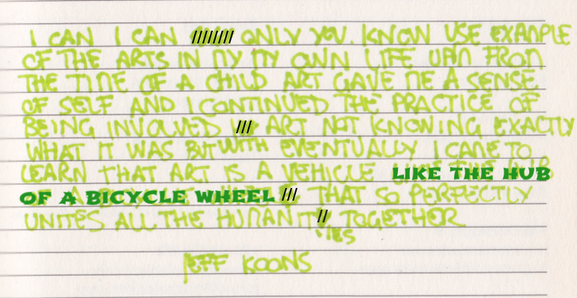 I CAN I CAN ONLY YOU. KNOW USE EXAMPLE
OF THE ARTS IN MY MY OWN LIFE UHM FROM
THE TIME OF A CHILD ART GAVE ME A SENSE
OF SELF AND I CONTINUED THE PRACTICE OF
BEING INVOLVED ART NOT KNOWING EXACTLY
WHAT IT WAS BUT WITH EVENTUALLY I CAME TO
LEARN THAT ART IS A VEHICLE LIKE THE HUB
OF A BICYCLE WHEEL THAT SO PERFECTLY
UNITES ALL THE HUMANIT TOGETHER
IES
JEFF KOONS